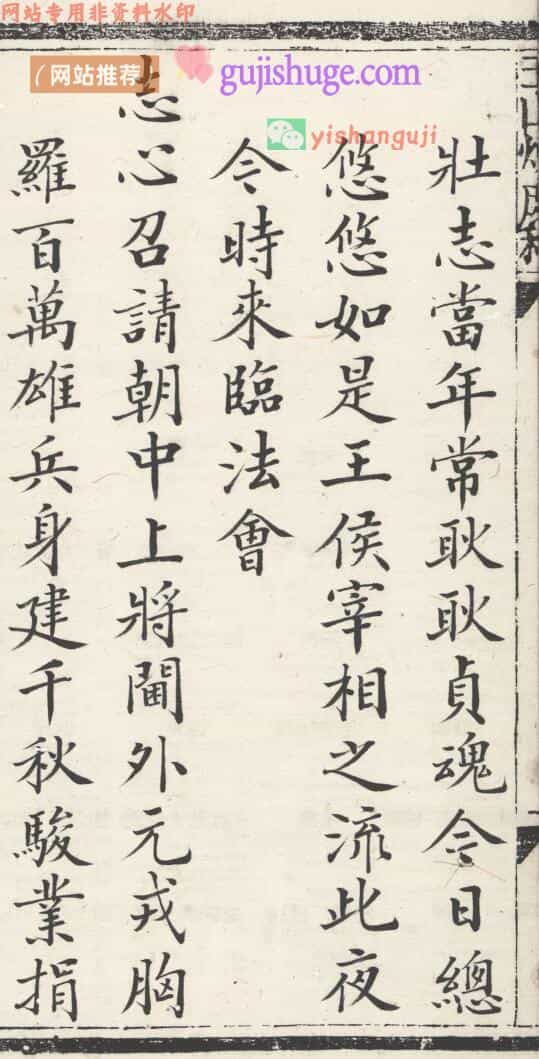 网站专用非资料水印
(网站推荐)
gujishuge.com
yishanguji
壯志當年常耿耿貞魂今日總
悠悠如是王侯宰相之流此夜
今時來臨法會
志心召請朝中上將閫外元戎胸
羅百萬雄兵身建千秋駿業捐